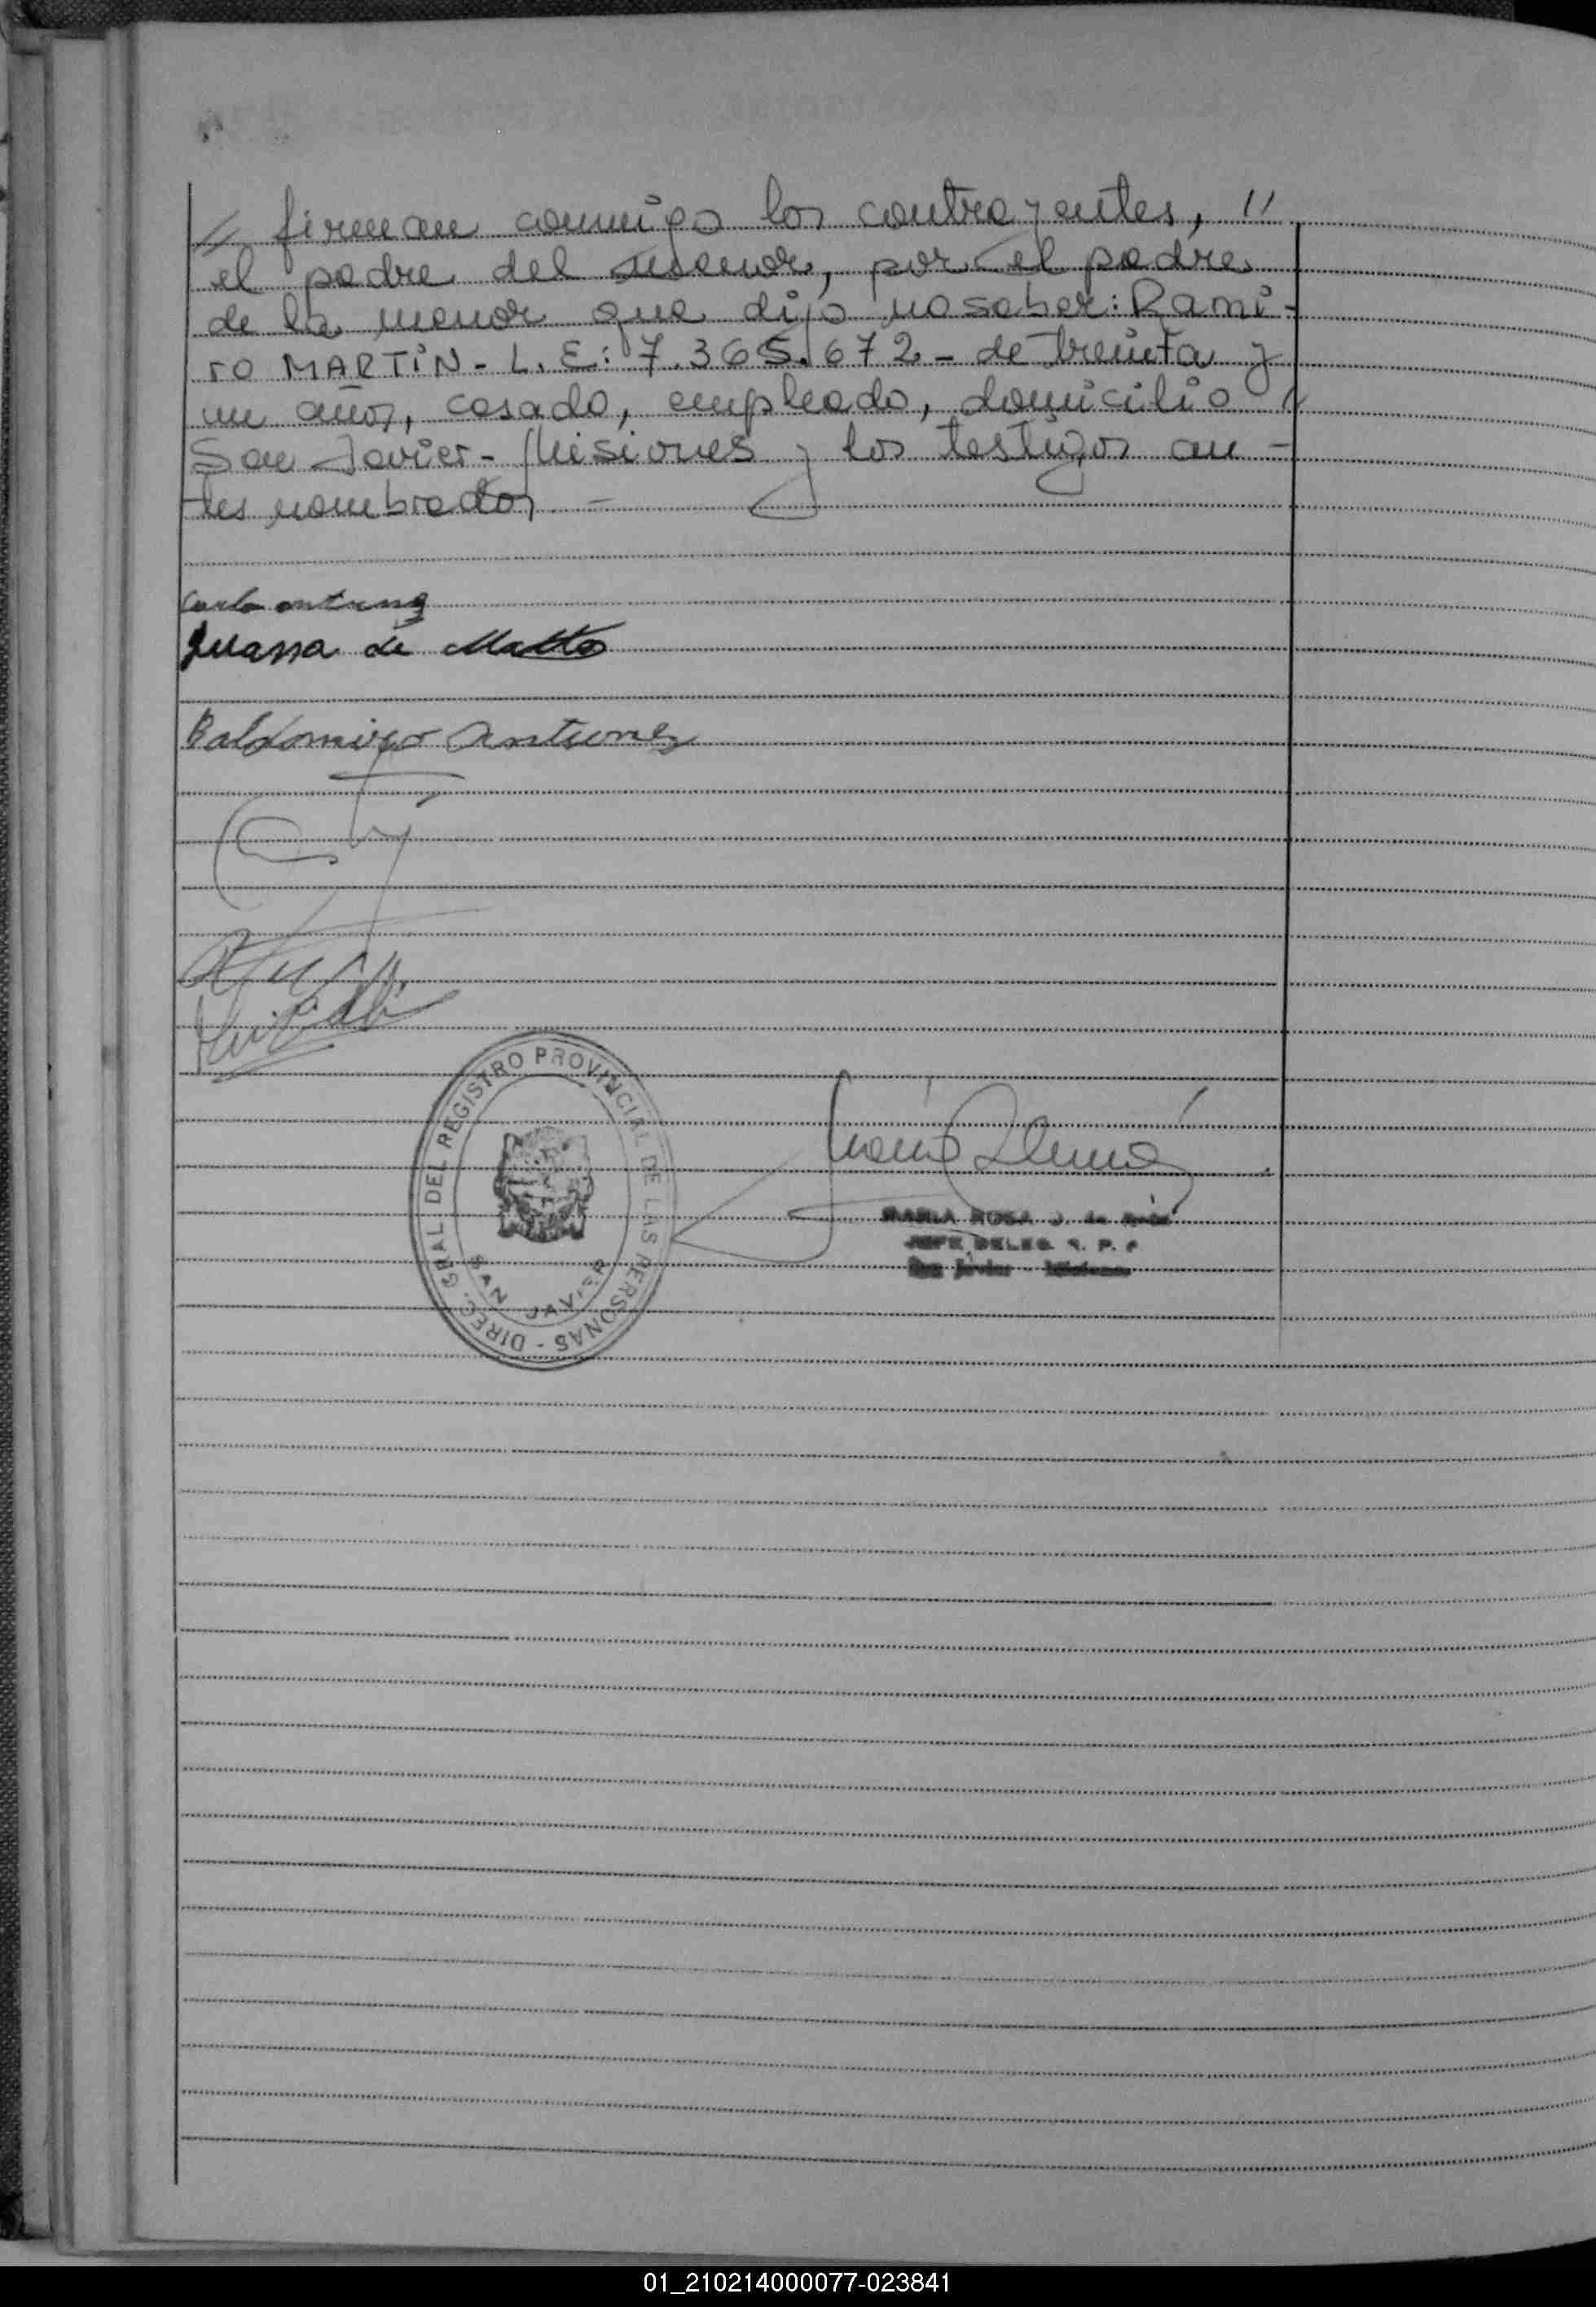 // firman conmigo los contrayentes, //
el padre del menor, por el padre
de la menor que dijo no saber: Rami-
ro MARTiN - L. E: 7.365.672 - de treinta y
un años, casado, empleado, domicilio
San Javier - Misiones y los testigos an-
tes nombrados. -
Juana de Matto
Baldomiro Antunez
DIREC. GRAL DEL REGISTRO PROVINCIAL DE LAS PERSONAS -
SAN JAVIER
MARIA ROSA J. de
JEFE DELEG. R. P. P
San Javier - Misiones
01_210214000077-023841